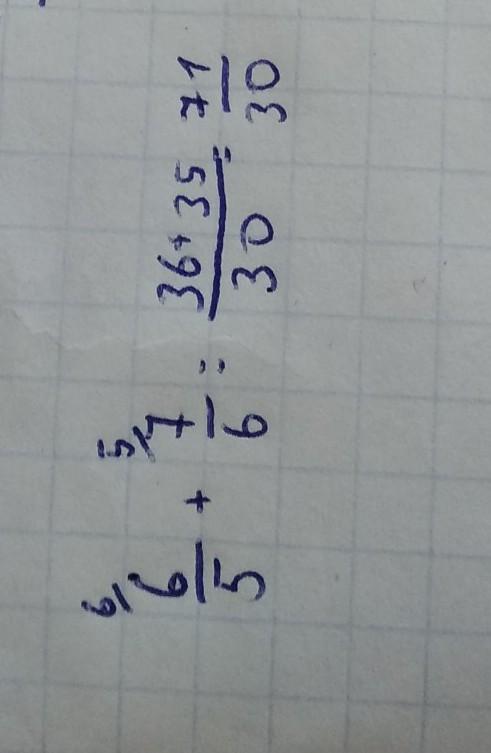 ⁶⁄ 6/5 + ⁵⁄ 7/6 = (36+35)/30 = 71/30